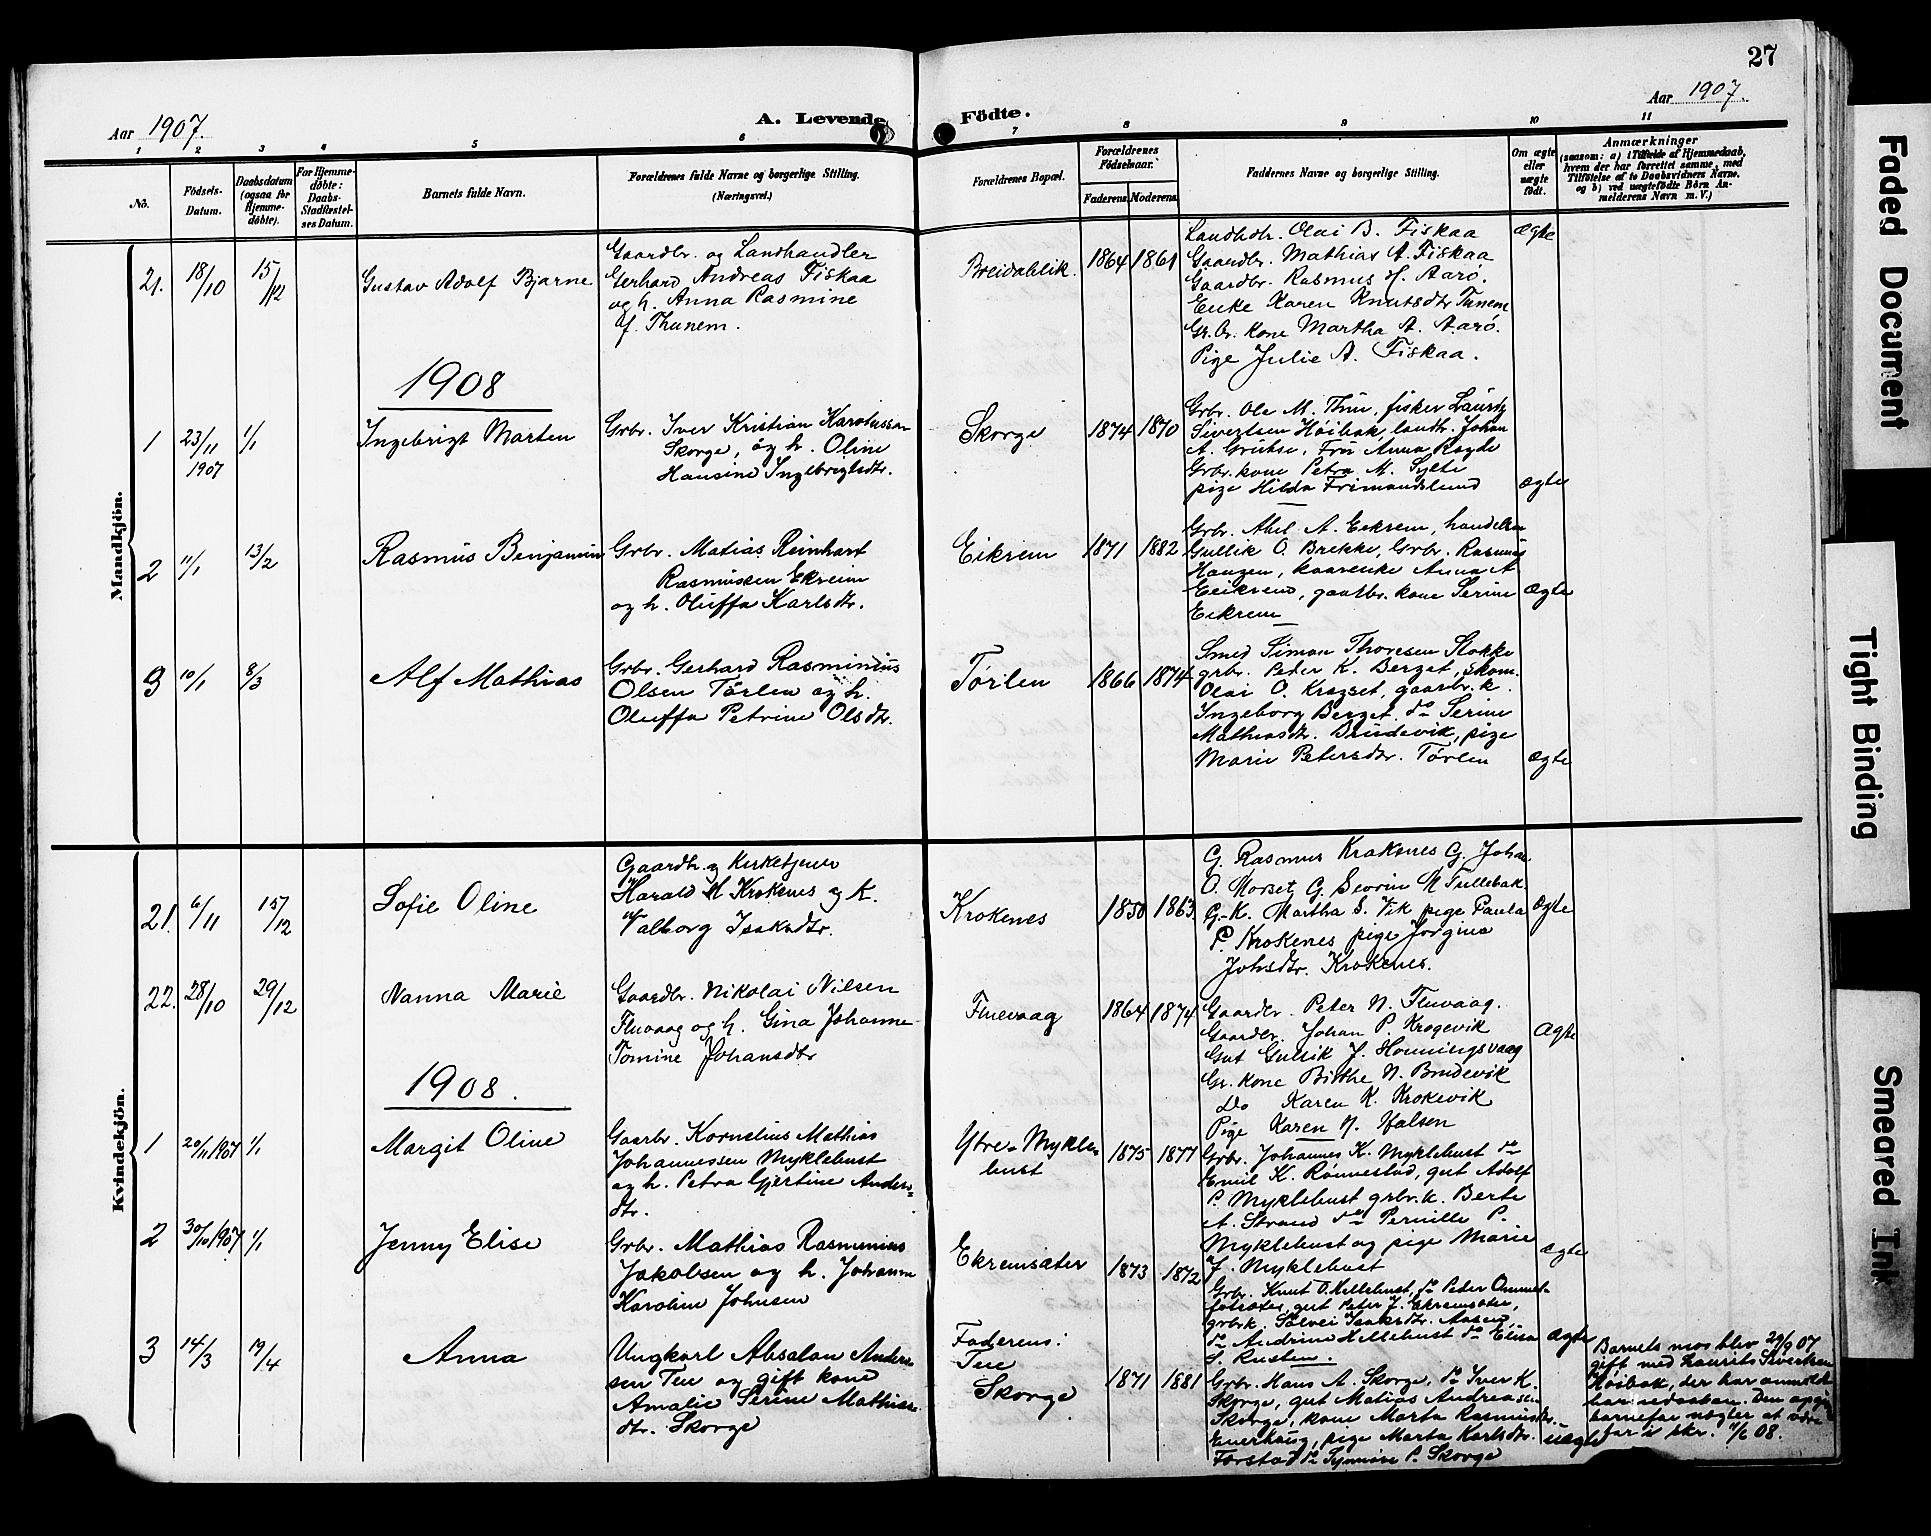 27
Aar 1907.
A. Levende Födte.
Aar 1907.
1 2 3 4 5 6 7 8 9 10 11
No.
Födsels-Datum.
Daabsdatum (ogsaa for Hjemme-döbte).
For Hjemme-döbte: Daabs-Stadfæstelses Datum.
Barnets fulde Navn.
Forældrenes fulde Navne og borgerlige Stilling. (Næringsvei.)
Forældrenes Bopæl.
Forældrenes Födselsaar.
Faderens. Moderens.
Faddernes Navne og borgerlige Stilling.
Om ægte eller uægte födt.
Anmærkninger
(saasom: a) i Tilfælde af Hjemmedaab, hvem der har forrettet samme, med Tilföielse af to Daabsvidners Navne, og b) ved uægtefödte Börn Anmelderens Navn m. V.)
Mandkjön.
21. 18/10 15/12 Gustav Adolf Bjarne
Gaardbr. og Landhandler
Gerhard Andreas Fiskaa
og h. Anna Rasmine
f. Thunem.
Breidablik. 1864 1861
Landhdr. Olai B. Fiskaa
Gaardbr. Mathias A. Fiskaa
Gaardbr. Rasmus H. Aarø.
Enke Karen Knutsdtr Tunem
Gr.Br. Kone Martha A. Aarø.
Pige Julie A. Fiskaa.
Ægte
1908
1 23/11 1907 1/1 Ingebrigt Marten
Grbr. Iver Kristian Karolussen
Skorge, og h. Oline
Hansine Ingebrigtsdtr.
Skorge 1874 1870
Grbr. Ole M. Thue, fisker Lauritz
Sivertsen Höibak, landh. Johan
A. Grübse, Fru Anna Ragde
Grbr. kone Petra M. Sylte
pige Hilda Frimandslund
ægte
2 11/1 13/2 Rasmus Benjamin
Grbr. Matias Reinhart
Rasmussen Ekreim
og h. Oluffa Karlsdtr.
Eikrem 1871 1882
Grbr. Abel A. Eikrem, handelsm
Gullik O. Brekke, Grbr. Rasmus
Haugen, kaarenke Anna A
Eeikrem, gaatbr. kone Serine
Eikrem
Ægte
3 10/1 8/3 Alf Mathias
Grbr. Gerhard Rasminius
Olsen Törlen og h.
Oluffa Petrine Olsdtr.
Tørlen 1866 1874
Smed Simon Thoresen Stokke
grbr. Peder K. Berget, skom.
Olai O. Kragset, gaarbr. k.
Ingeborg Berget. do Serine
Mathiasdtr. Brudevik, pige
Marie Petersdtr. Tørlen
Ægte
Kvindekjön.
21. 6/11 15/12 Sofie Oline
Gaardbr. og Kirketjener
Harald M Krokenes og K.
Valborg Isaksdtr.
Krokenes 1850 1863.
G. Rasmus Krakenes G. Johan
O. Morset, G. Severin M Tullebak
G.-K. Martha S. Vik pige Paula
P. Krokenes pige Jorgine
Johsdtr. Krokenes.
Ægte
22. 28/10 29/12 Nanna Marie
Gaardbr. Nikolai Nilsen
Fluvaag og h. Gina Johanne
Tomine Johansdtr
Fluevaag 1864 1874
Gaardbr. Peter N. Fluvaag.
Gaardbr. Johan P. Krogevik
Gut Gullik J. Honningsvaag
Gr. Kone Birthe N. Brudevik
Do Karen K. Krokevik
Pige Karen N. Halsen
Ægte
1908.
1 20/11 1907 1/1 Margit Oline
Gaarbr. Kornelius Mathias
Johannessen Myklebust
og h. Petra Gjertine Anders-
dtr.
Ytre-Mykle-
bust 1875 1877
Grbr. Johannes K. Myklebust do
Emil K. Rønnestad, gut Adolf
P. Myklebust grbr.k. Berte
A. Strand do Pernille P.
Myklebust og pige Marie
J. Myklebust
Ægte
2 30/10 1907 1/1 Jenny Elise
Grbr. Mathias Rasmunius
Jakobsen og h. Johanne
Karoline Johnsen
Ekremsæter 1873 1872
Grbr. Knut O. Hellebust, do Peter Ommed-
fotsæter, gut Peter J. Ekremsæter,
grbrk. Solvei Isaksdtr. Aasen
do Andrine Hellebust do Elisa
S. Rusten.
Ægte
3 14/3 19/4 Anna
Ungkarl Absalon Ander-
sen Tue og gift kone
Amalie Serine Mathias-
dtr. Skorge
Faderens:
Tue
Skorge 1871 1881
Grbr. Hans A. Skorge, do Iver K.
Skorge, gut Matias Andreasen
Skorge, kone Marta Rasmusdtr.
Enerhaug, pige Marta Karlsdtr.
Forstad do Synnöve P. Skorge
uægte
Barnets mor blev 29/9 07
gift med Laurits Sivertsen
Höibak, der har anmeldt
barnedaaben. Den opgivne
barnefar nægter at være
far i skr. 11/6 08.